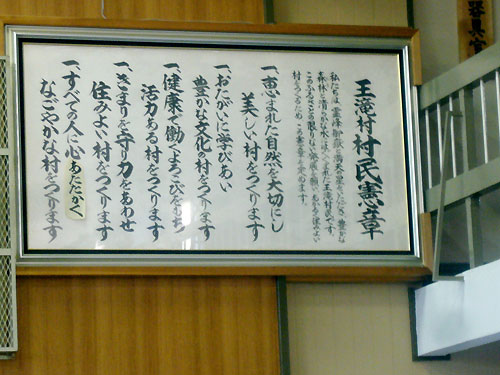 王滝村村民憲章
私たちは、霊峰御嶽
森林と清らかな水にはぐくまれた王滝村民です。
村をつくるため、この憲章を定めます。
一、恵まれた自然を大切にし
美しい村をつくります
一、おたがいに学びあい
豊かな文化の村をつくります
一、健康で働くよろこびをもち
活力ある村をつくります
一、きまりを守り力をあわせ
住みよい村をつくります
一、すべての人に心あたたかく
なごやかな村をつくります